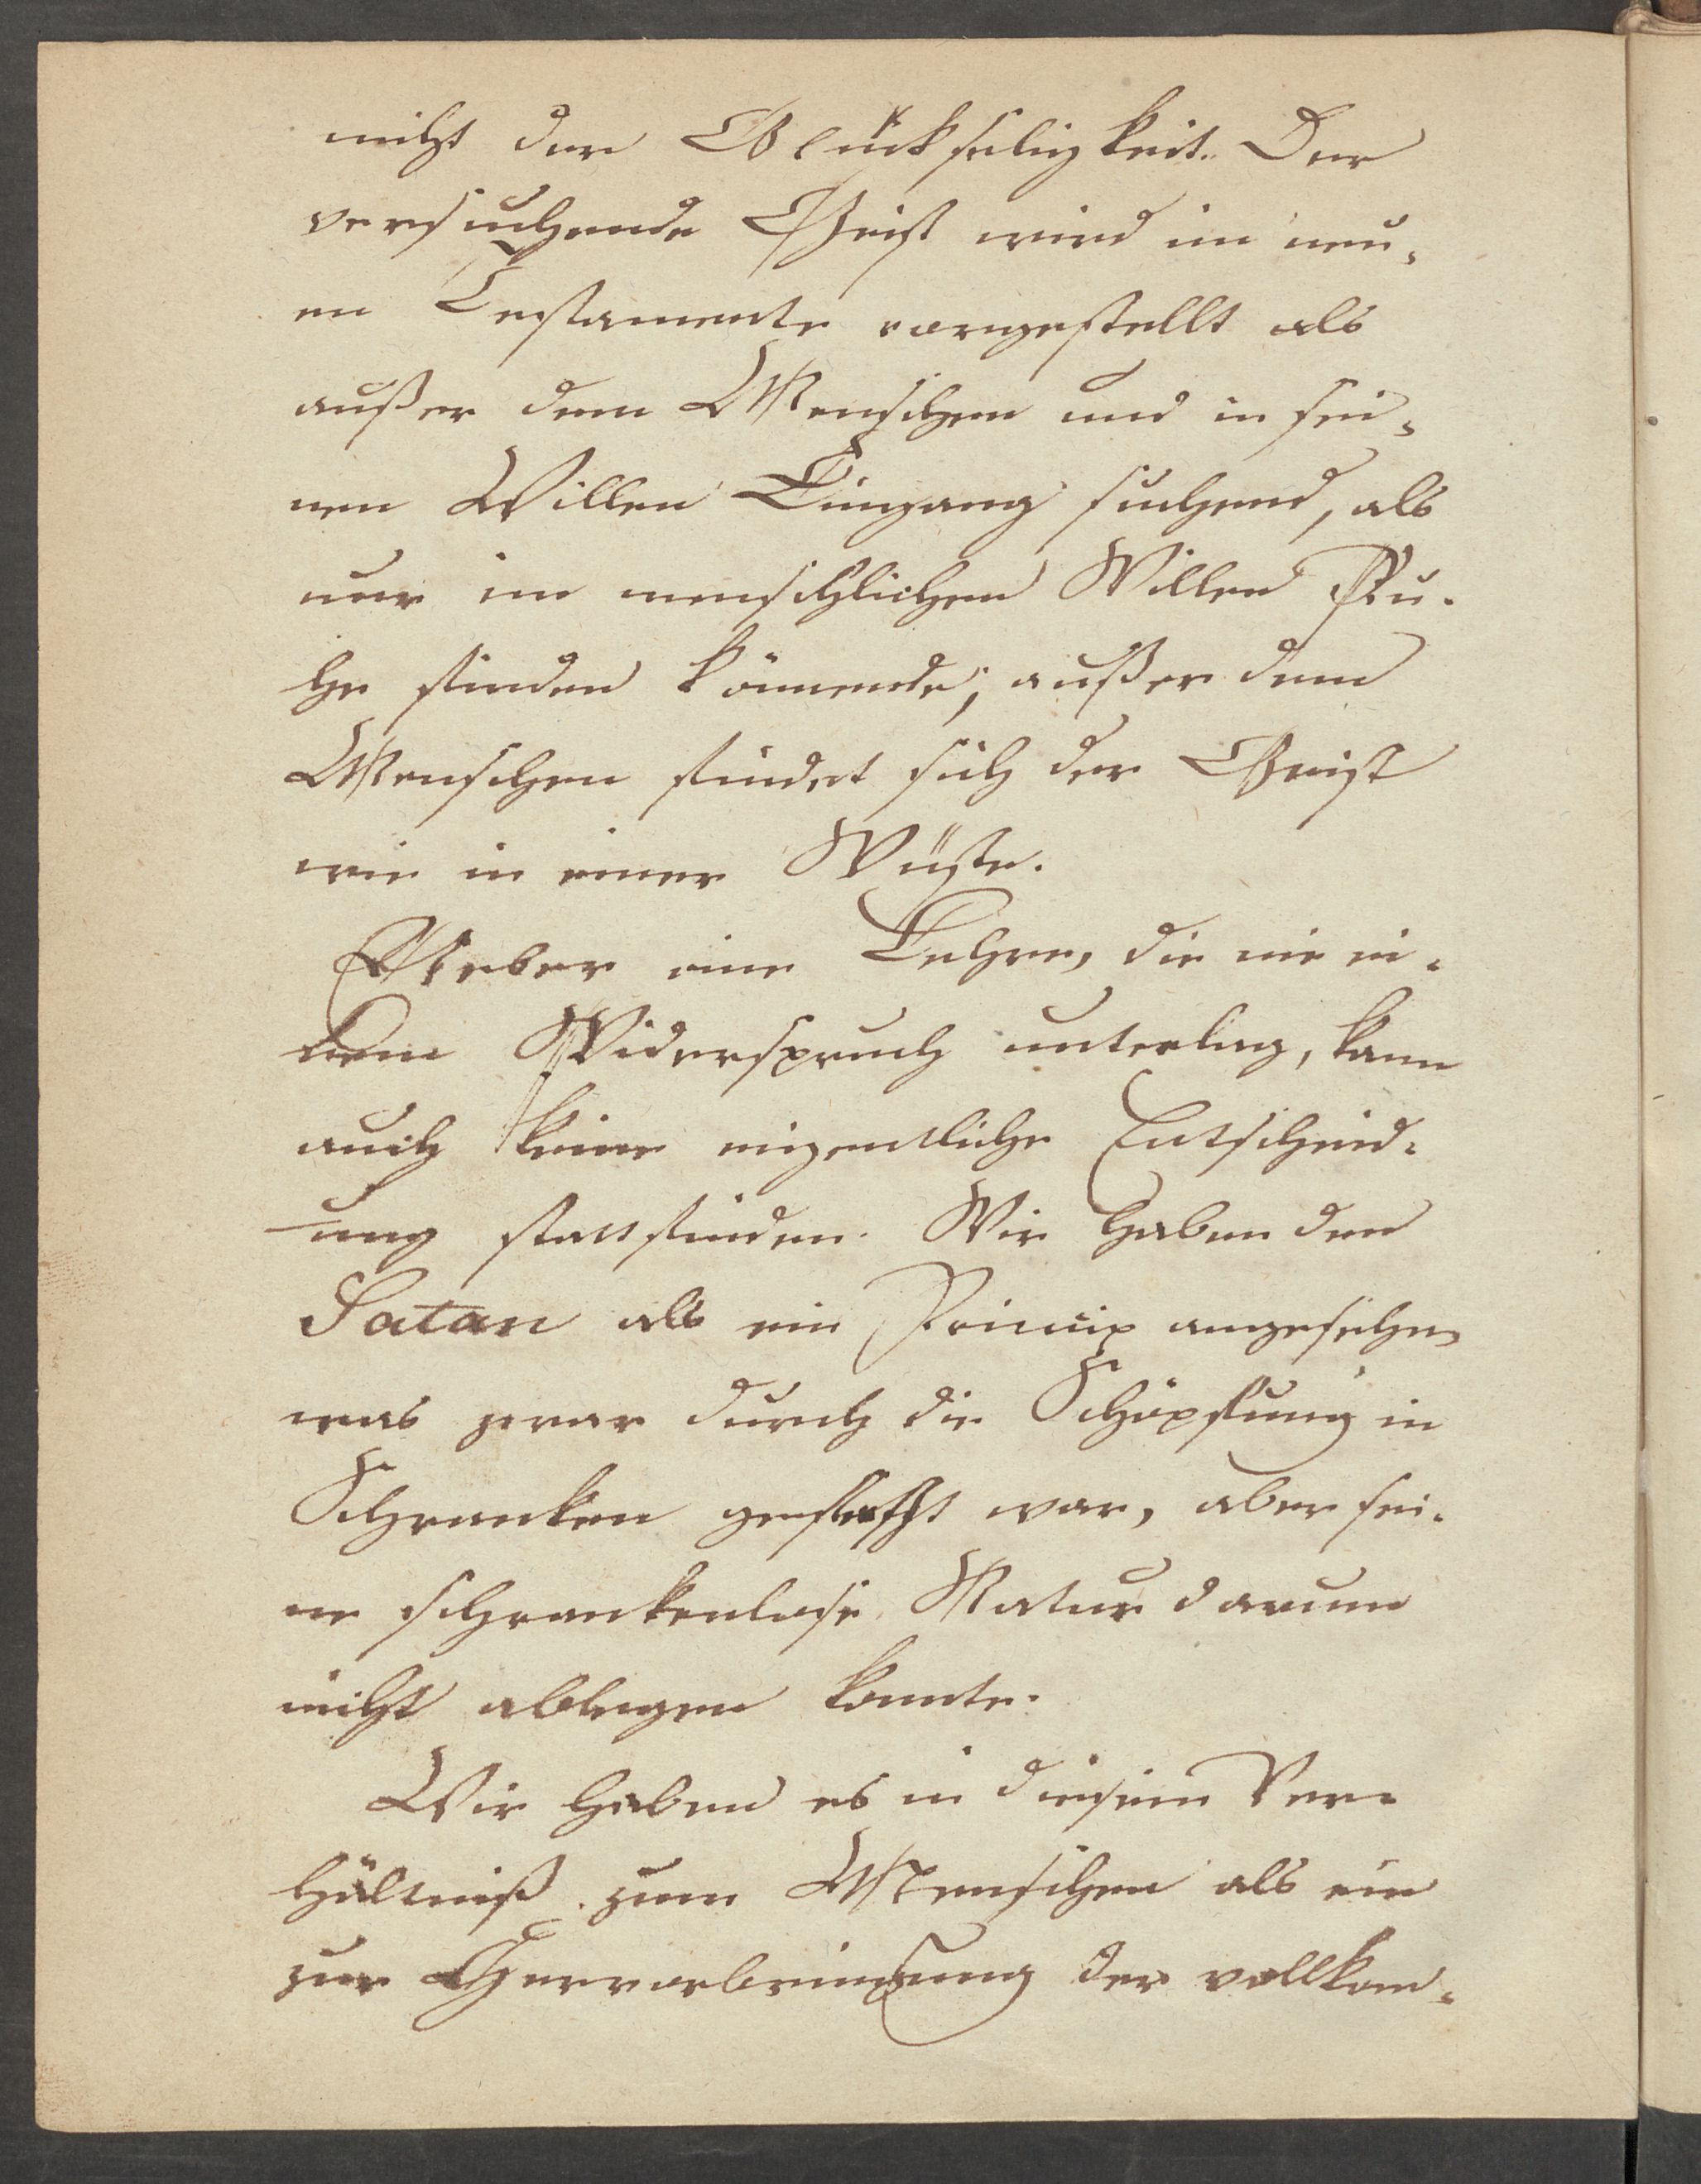 nicht der Glückseligkeit. Der
versuchende Geist wird im neu-
en Testamente vorgestellt als
außer dem Menschen und in sei-
nen Willen Eingang suchend, als
nur im menschlichen Willen Ru-
he finden könnende; außer dem
Menschen findet sich der Geist
wie in einer Wüste.
Ueber eine Lehre, die nie ei-
nem Widerspruch unterlag, kann
auch keine eigentliche Entscheid-
ung stattfinden. Wir haben den
Satan als ein Princip angesehen
was zwar durch die Schöpfung in
Schranken gesetzt war, aber sei-
ne schrankenlose Natur darum
nicht ablegen konnte.
Wir haben es in diesem Ver-
hältniß zum Menschen als ein
zur Hervorbringung der vollkom-